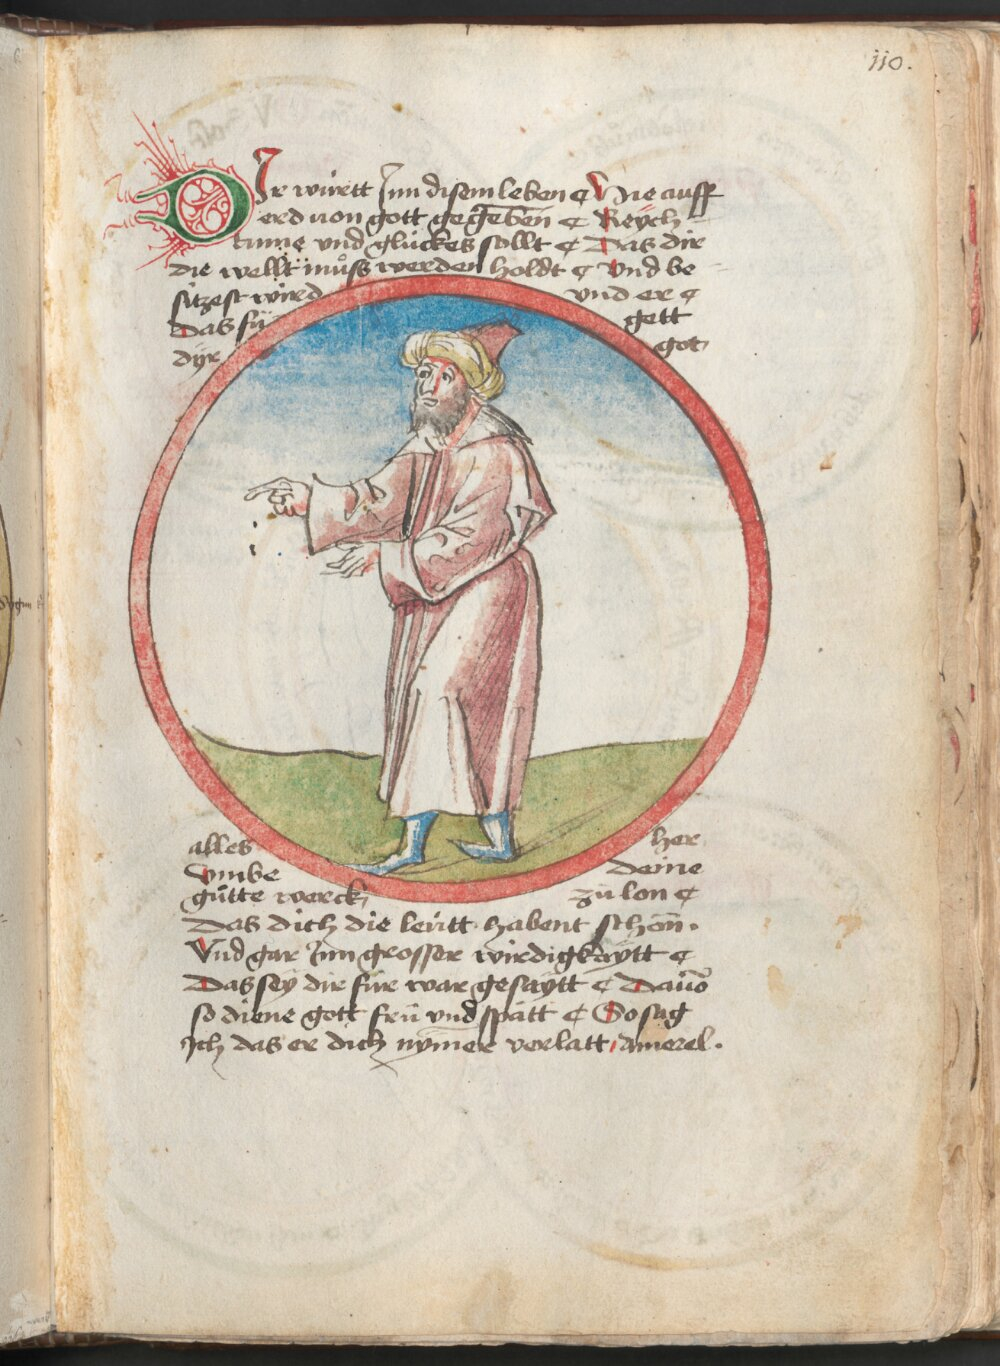 110.
DIr wirtt Inn disem leben ¢ Hie auff
erd von gott gegeben ¢ Reych
tume vnd glückes sollt ¢ Das dir
die wellt müß werden holdt ¢ Vnd be
sitzest wird vnd er ¢
Das fü gett
dÿr got
alles her
Vmbe deine
gütte werck zü lon ¢
Das dich die leütt habent schon.
Vnd gar Inn grosser wirdigkaÿtt ¢
Das seÿ dir für war gesaÿtt ¢ Dauō
so diene gott frü vnd spätt ¢ So sag
Ich das er dich nÿmer verlatt, Amerel.